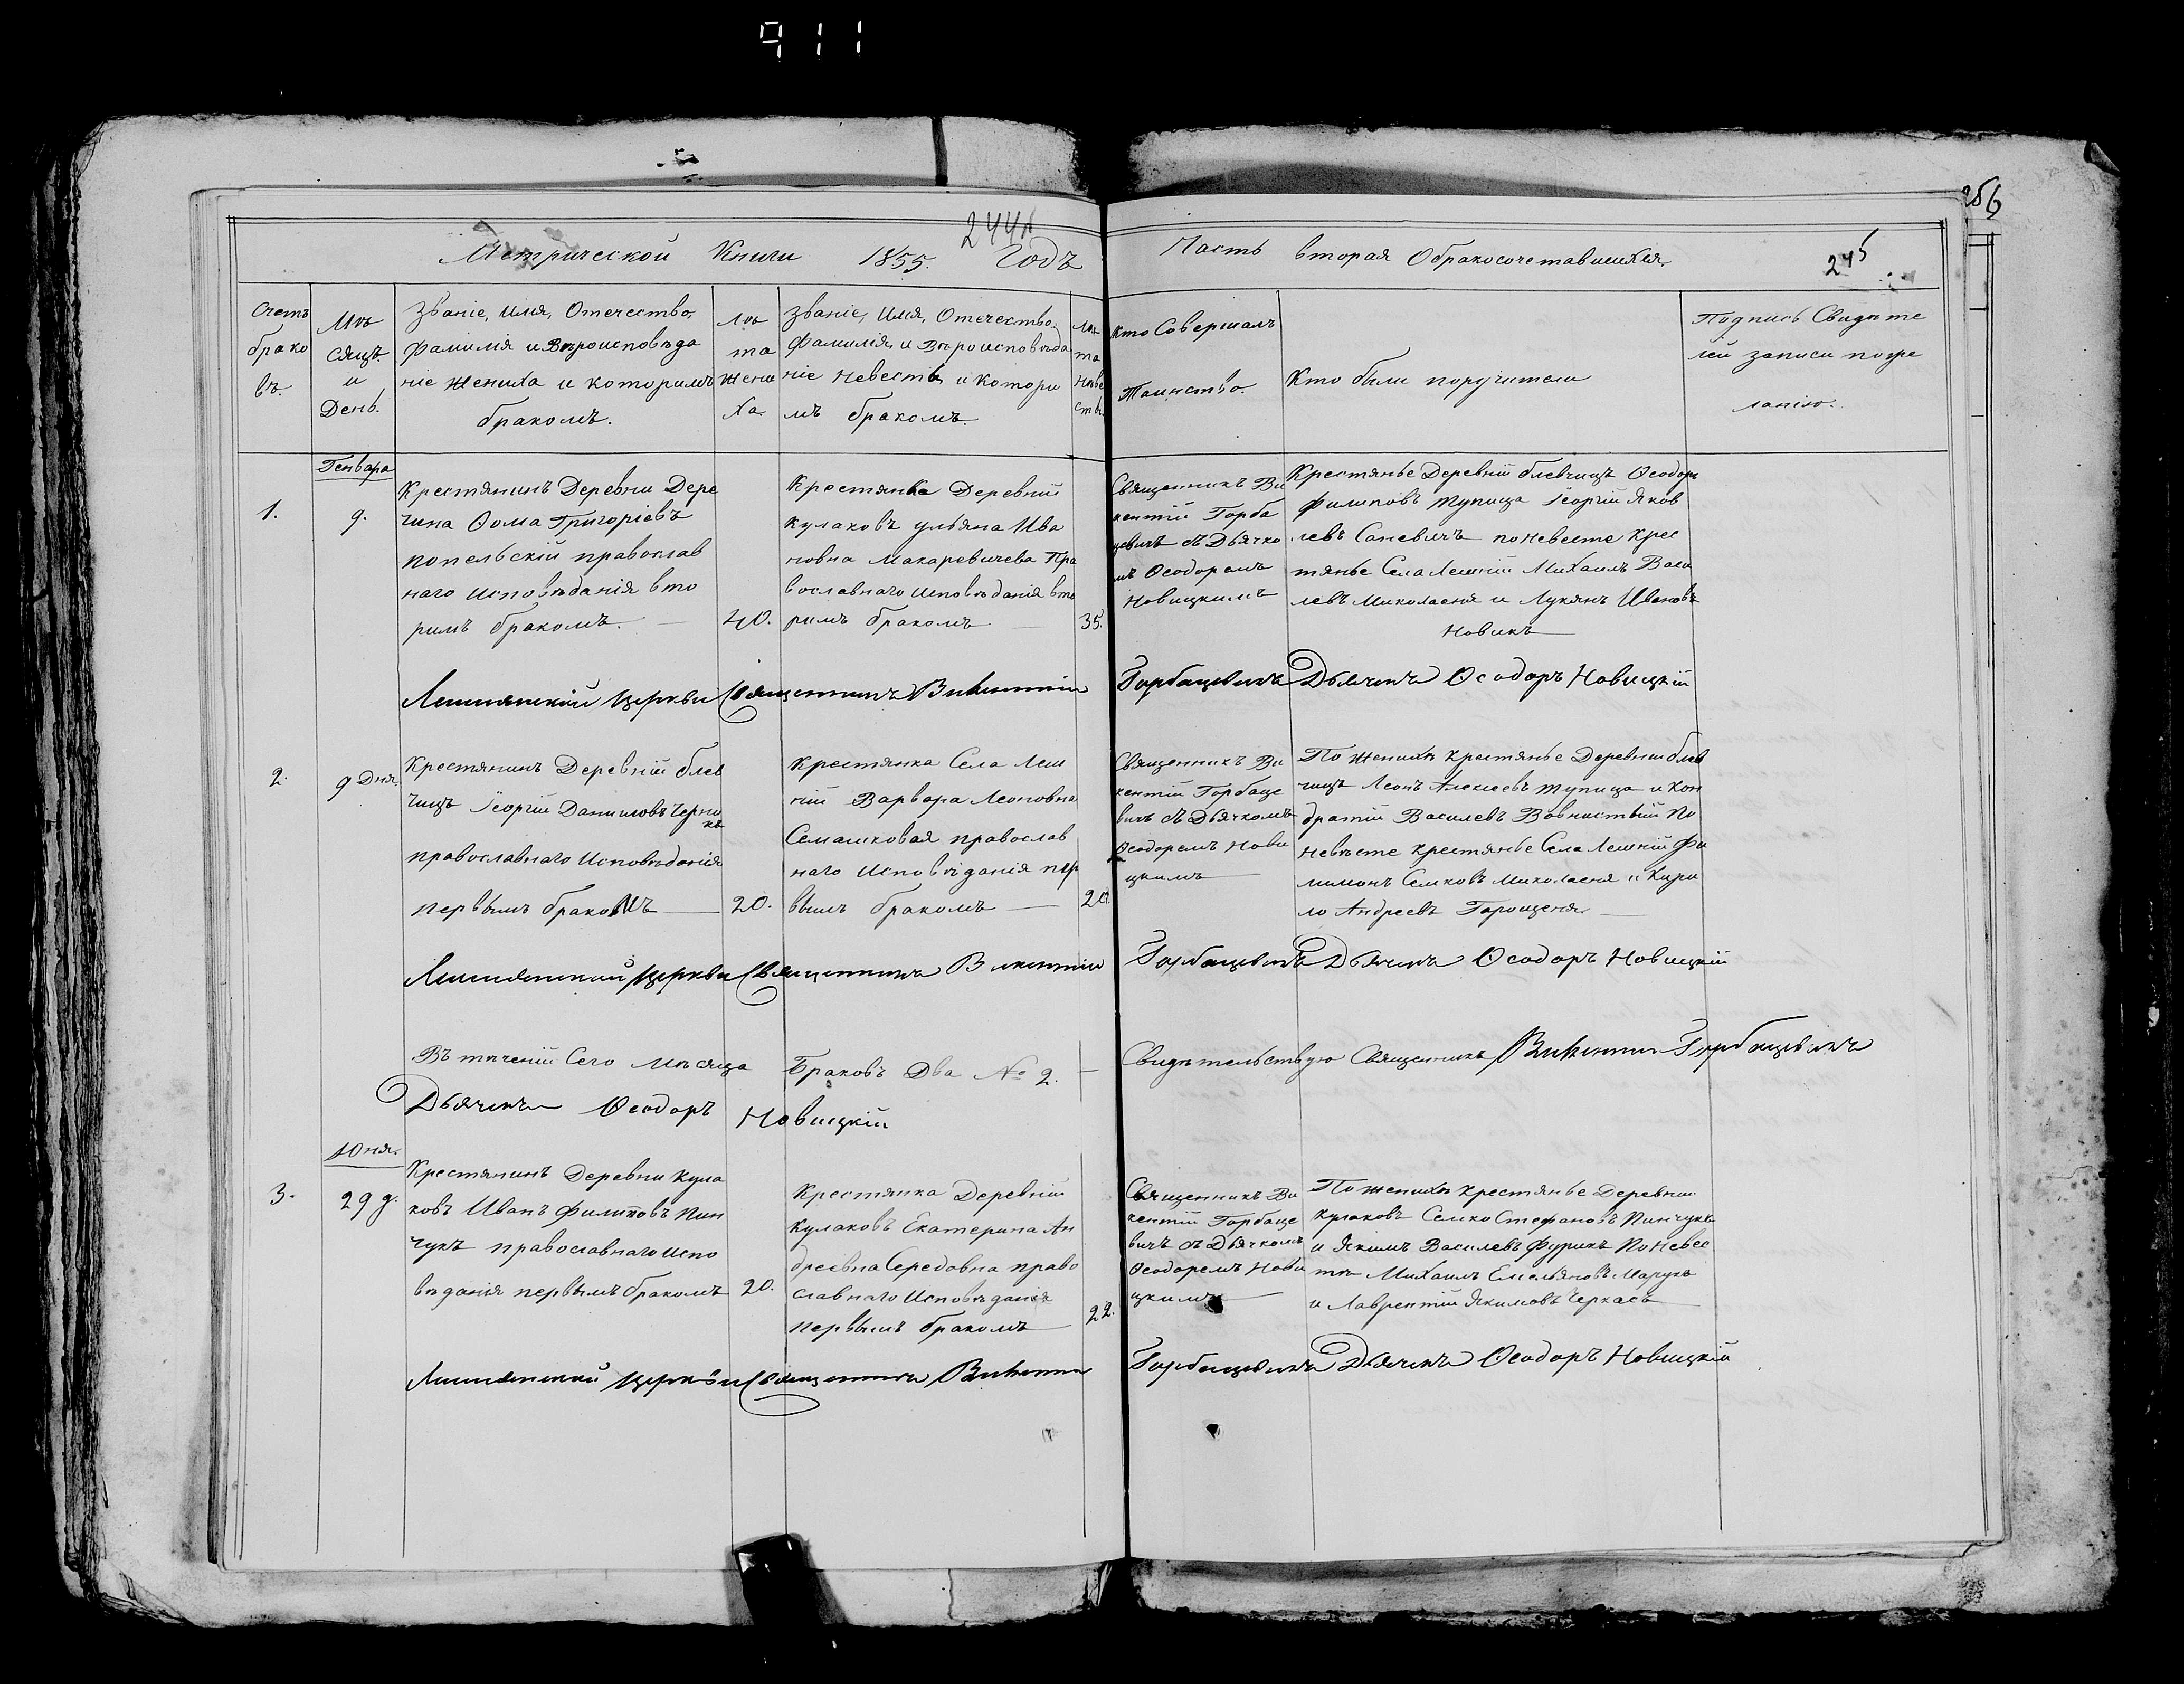 911
256
244А
Метрической Книги 1855. Годъ
Часть вторая Обракосочетавшихся.
245
Счетъ
брако
въ.
Мѣ
сяцъ
и
День.
Званіе, Имя, Отечество,
Фамилія и Вѣроисповѣда
ніе жениха и которимъ
бракомъ.
Лѣ
та
жени
ха.
Званіе, Имя, Отечество,
Фамилія, и Вѣроисповѣда
ніе Невесты, и котори
мъ бракомъ.
Лѣ
та
Нѣве
сты.
Кто Совершалъ
Таинство.
Кто были поручители
Подпись Свидѣте
лей записи пожѣ
ланію.
Генвара
1.
9.
Крестянинъ Деревни Дере
чина Ѳома Григоріевъ
Попельскій православ
наго Исповѣданія вто
римъ бракомъ.
40.
Крестянка Деревній
Кулаковъ Ульяна Ива
новна Макаревичева Пра
вославнаго Исповѣданія вто
римъ бракомъ
35.
Священникъ Ви
кентій Горба
цевичъ съ Дьячко
мъ Ѳеодоромъ
Новицкимъ
Крестянье Деревній блевчицъ Ѳеодоръ
Филиповъ Тупица Георгій Яков
левъ Саневичъ по Невесте Крес
тянье Села Лешній Михаилъ Васи
левъ Миколаеня и Лукянъ Ивановъ
Новикъ
Лешнянскій церкви Священникъ Викентій Горбацевичъ Дьячекъ Ѳеодоръ Новицкій
2.
9 Дня.
Крестянинъ Деревній блев
чицъ Георгій Даниловъ Черни
къ
православнаго Исповѣданія
первымъ бракомъ
20.
Крестянка Села Леш
ній Варвара Леоновна
Семашковая православ
наго Исповѣданія пер
вымъ бракомъ
20.
Священникъ Ви
кентій Горбаце
вичъ съ Дьячкомъ
Ѳеодоромъ Нови
цкимъ
По женихѣ крестянье Деревни блев
чицъ Леонъ Алексеевъ Тупица и Кон
дратій Василевъ Вовнистый По
Невѣсте крестянье Села Лешній Фи
лимонъ Семковъ Миколаеня и Кири
ло Андреевъ Горощеня
Лешнянскій церкви Священникъ Викентій Горбацевичъ Дьячекъ Ѳеодоръ Новицкій
Въ теченіи Сего Мѣсяца Браковъ Два № 2. Свидѣтельствую Священникъ Викентій Горбацевичъ
Дьячекъ Ѳеодоръ Новицкій
Юня.
3.
29 д.
Крестянинъ Деревни Кула
ковъ Иванъ Филиповъ Пин
чукъ православнаго Испо
вѣданія первымъ бракомъ
20.
Крестянка Деревній
Кулаковъ Екатерина Ан
дреевна Середовна право
славнаго Исповѣданія
первымъ бракомъ
22.
Священникъ Ви
кентій Горбаце
вичъ съ Дьячкомъ
Ѳеодоромъ Нови
цкимъ
По женихѣ крестянье Деревни
Кулаковъ Семко Стефановъ Пинчукъ
и Якимъ Василевъ Фурикъ По Невес
тѣ Михаилъ Емельяновъ Марукъ
и Лаврентій Якимовъ Черкасъ
Лешнянскій церкви Священникъ Викентій Горбацевичъ Дьячекъ Ѳеодоръ Новицкій